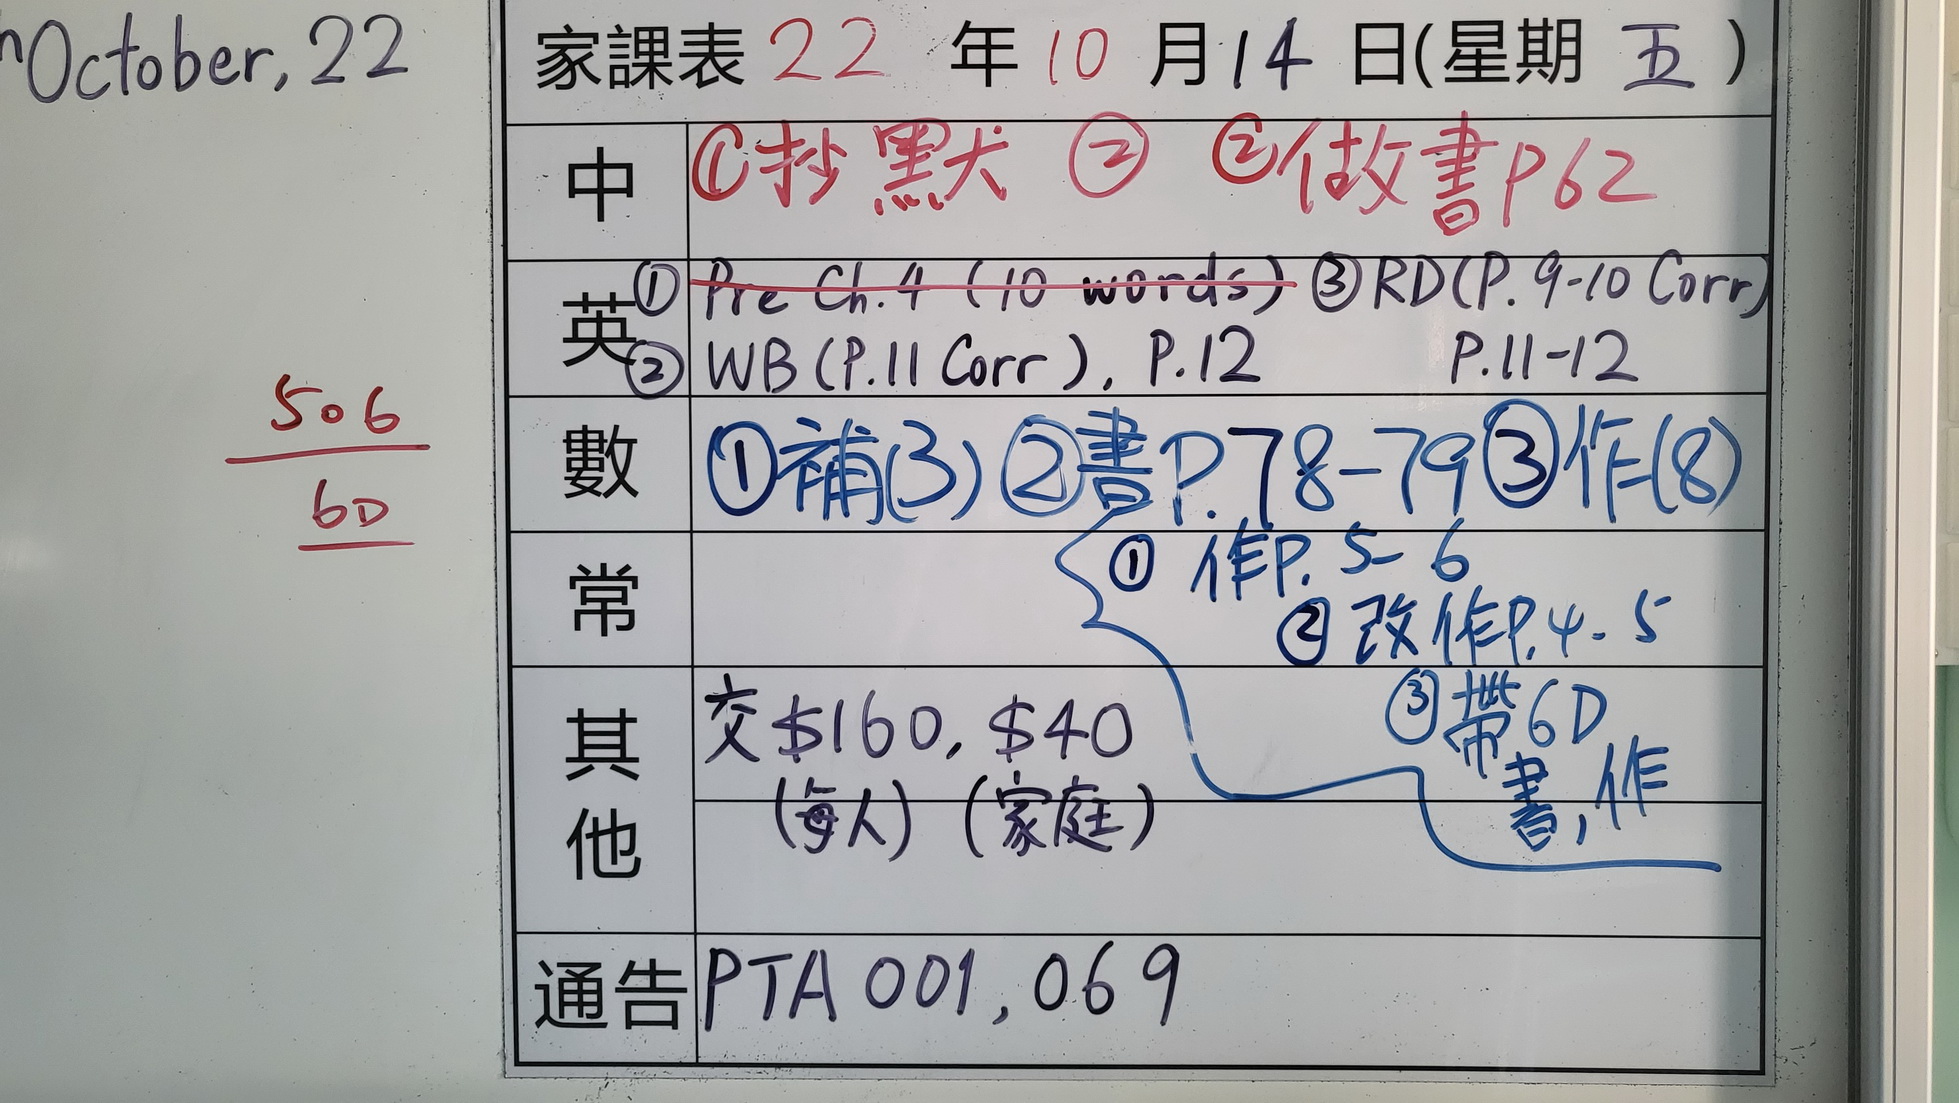 October, 22
家課表 22 年 10 月 14 日(星期 五 )
中 ①抄默 ② ②做書P62
英 ① Pre Ch.4 (10 words) ③RD(P.9-10 Corr)
② WB (P.11 Corr), P.12 P.11-12
數 ①補(3) ②書P.78-79 ③作(8)
常 ① 作P.5-6
② 改作P.4-5
其他 交 $160, $40 ③ 帶 6D
(每人) (家庭) 書,作
通告 PTA 001, 069
506
6D